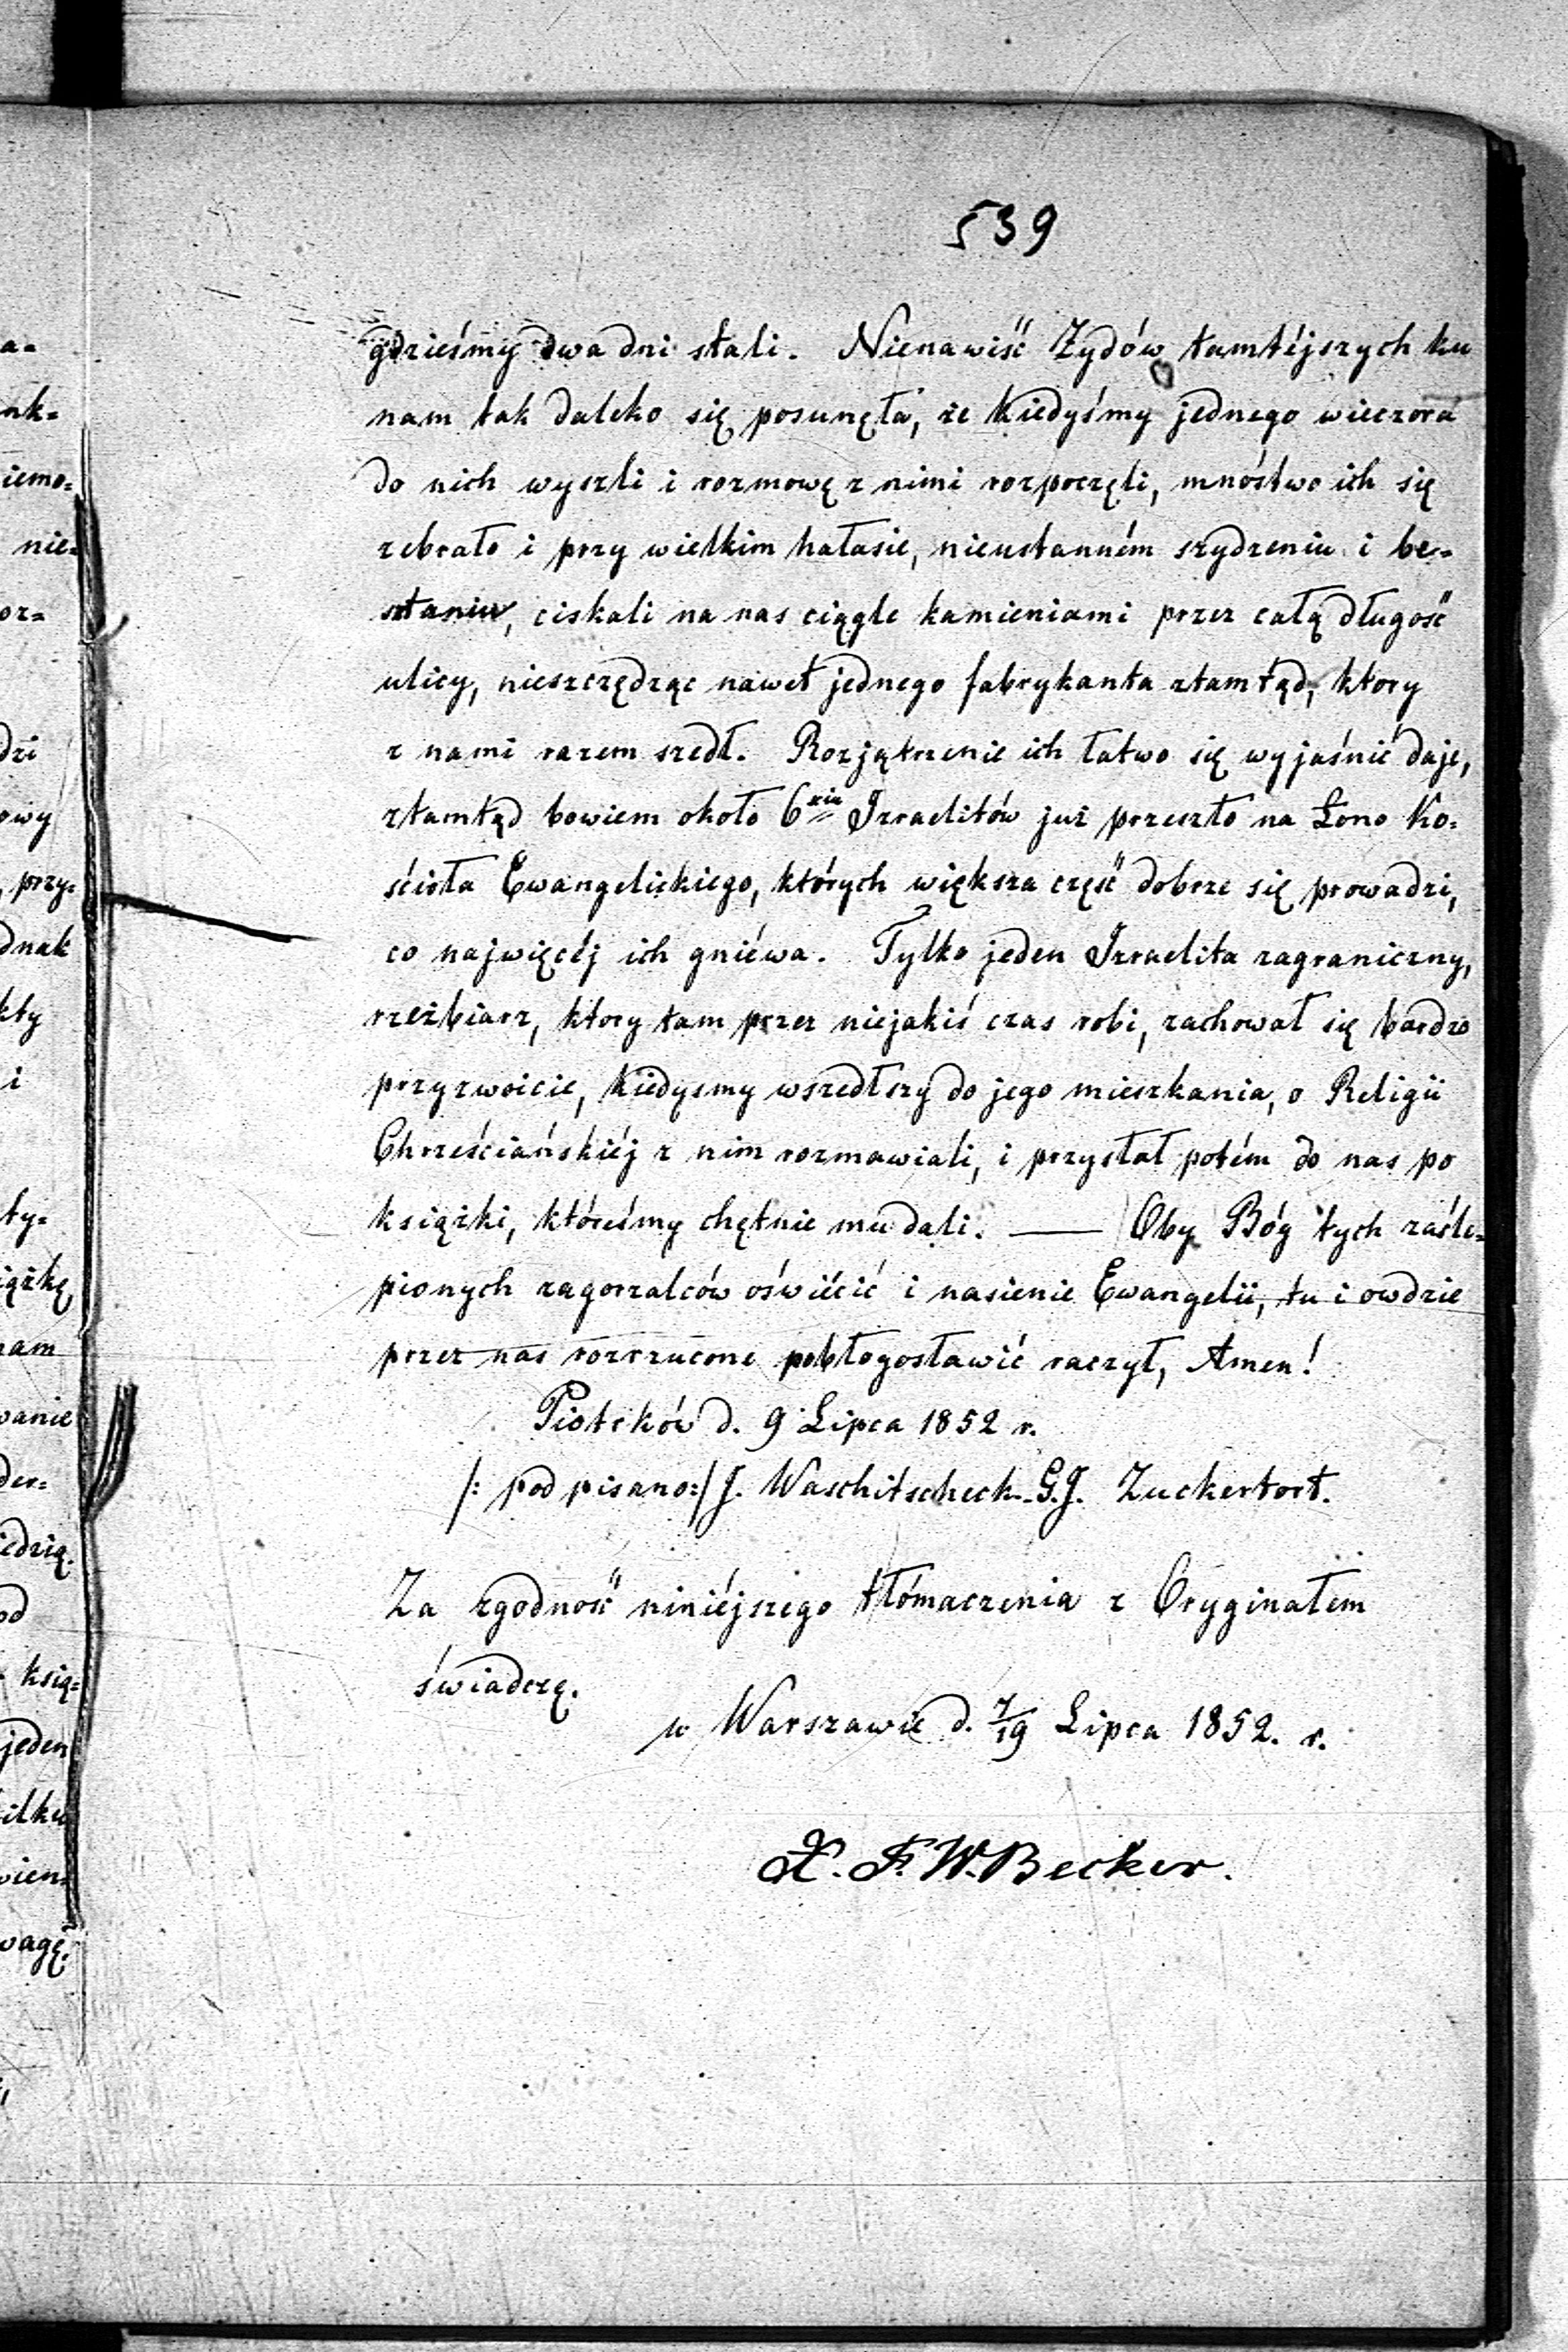 539
a=
gdzieśmy dwa dni stali. Nienawiść Żydów tamtéjszych ku
nk=
nam tak daleko się posunęła, że kiedyśmy jednego wieczora
iemo=
do nich wyszli i rozmowę z nimi rozpoczęli, mnóstwo ich się
nie=
zebrało i przy wielkim hałasie, nieustanném szydzeniu i be=
or=
sztaniu, ciskali na nas ciągle kamieniami przez całą długość
ulicy, nieszczędząc nawet jednego fabrykanta ztamtąd, ktory
dzi
z nami razem szedł. Rozjątrzenie ich łatwo się wyjaśnić daje,
owy
ztamtąd bowiem około 6ciu Izraelitów już przeszło na Łono Ko=
, przy=
ścioła Ewangelickiego, których większa część dobrze się prowadzi,
dnak
co najwięcéj ich gniéwa. Tylko jeden Izraelita zagraniczny,
kty
rzeźbiarz, ktory tam przez niejakiś czas robi, zachował się bardzo
i
przyzwoicie, kiedysmy wszedłszy do jego mieszkania, o Religii
Chrześciańskiéj z nim rozmawiali, i przysłał potém do nas po
ty=
książki, któreśmy chętnie mu dali. — Oby Bóg tych zaśle=
iążkę
pionych zagorzalców oświécić i nasienie Ewangelii, tu i owdzie
nam
przez nas rozrzucone pobłogosławić raczył, Amen!
wanie
Piotrków d. 9 Lipca 1852 r.
der=
/: podpisano:/ J. Waschitscheck. G.J. Zuckertort.
iedzią.
od
Za zgodność niniéjszego tłómaczenia z Oryginałem
ksią=
świadczę.
jeden
w Warszawie d. 7/19 Lipca 1852. r.
ilku
wien=
X. F. W. Becker.
wagę.